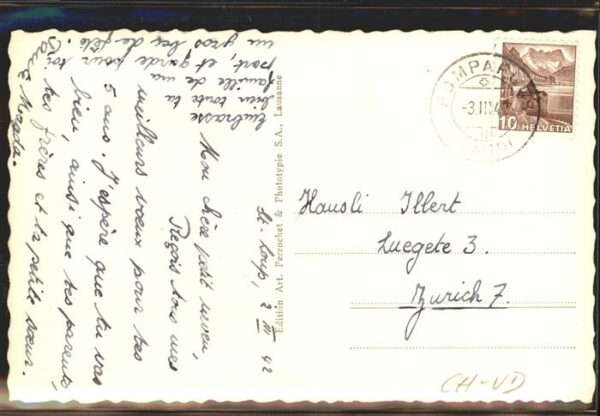 St. Loup, 2 III 42
Mon cher petit neveu,
Reçois tous mes
meilleurs vœux pour tes
5 ans. J'espère que tu vas
bien, ainsi que tes parents,
tes frères et ta petite sœur.
Embrasse
bien toute la
famille de ma
part, et garde pour toi
un gros bec de fête.
Edition Art. Perrochet & Phototypie S.A., Lausanne
POMPAPLES
-3.III.42
10 HELVETIA
Hausli Illert
Luegete 3.
Zurich 7.
CH-VD